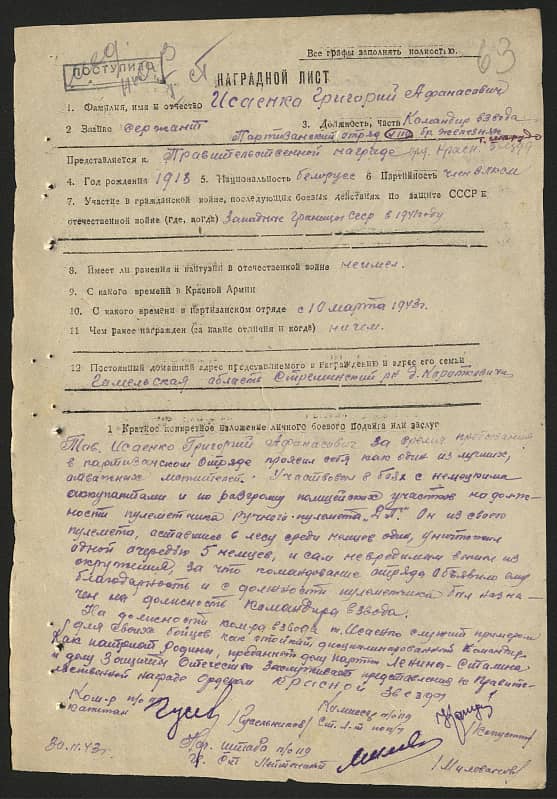 Все графы заполнять полностью.
63
ПОСТУПИЛО
НАГРАДНОЙ ЛИСТ
1. Фамилия, имя и отчество Исаенко Григорий Афанасович
2 Звание сержант 3. Должность, часть Командир взвода
Партизанский отряд бр. Железняк
Представляется к Правительственной награде орд. Красн. Звезда
4. Год рождения 1918 5. Национальность белорус 6 Партийность член ВЛКСМ
7. Участие в гражданской войне, последующих боевых действиях по защите СССР и
отечественной войне (где, когда) Западная граница СССР в 1941 году
8. Имеет ли ранения и контузии в отечественной войне неимел.
9. С какого времени в Красной Армии
10. С какого времени в партизанском отряде с 10 марта 1943 г.
11 Чем ранее награжден (за какие отличия и когда) ничем.
12 Постоянный домашний адрес представляемого к награждению и адрес его семьи
Гамельская область Стрешинский рн д.
1 Краткое конкретное изложение личного боевого подвига или заслуг
Тов. Исаенко Григорий Афанасович за время пребывания
в партизанском отряде проявил себя как один из лучших,
отважных мстителей. Участвовал в боях с немецкими
оккупантами и по разгрому полицейских участков на долж-
ности пулеметчика ручного пулемета "ДП". Он из своего
пулемета, оставшись в лесу среди немцев один, уничтожил
одной очередью 5 немцев, и сам невредимым вышел из
окружения, за что командование отряда объявило ему
благодарность и с должности пулеметчика был назна-
чен на должность командира взвода.
На должности ком-ра взвода т. Исаенко служит примером
для своих бойцов как стойкий дисциплинированный командир.
Как патриот Родины, преданный делу партии Ленина-Сталина
и делу Защиты Отечества заслуживает представления к правите-
льственной награде орденом Красной Звезды
Ком-р п/о
капитан Гусев
Комиссар п/о
Ст. л-т
30.11.43 г.
Нач. штаба п/о
Лейтенант /Милованов/